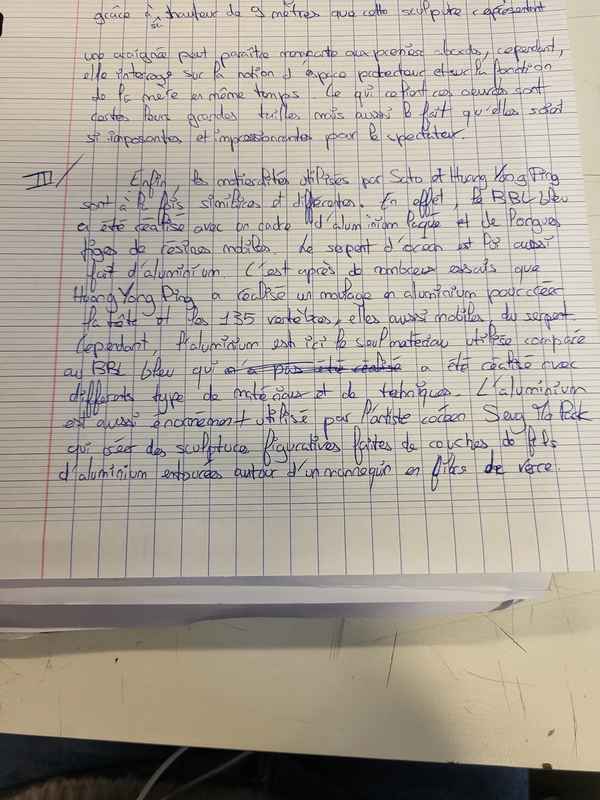 grâce à sa hauteur de 9 mètres que cette sculpture représentant
une araignée peut paraître menaçante aux premiers abords, cependant,
elle interroge sur la notion d'espace protecteur et sur la fonction
de la mère en même temps. Ce qui ces oeuvres sont
certes leurs grandes tailles mais aussi le fait qu'elles soient
si imposantes et impressionnantes pour le spectateur.
III/ Enfin, les matérialités utilisés par Soto et Huang Yong Ping
sont à la fois similaires et différentes. En effet, le BBL bleu
a été réalisé avec un cadre d'aluminium laqué et de longues
tiges de résines mobiles. Le serpent d'océan est lui aussi
fait d'aluminium. C'est après de nombreux essais que
Huang Yong Ping a réalisé un moulage en aluminium pour créer
la tête et les 135 vertèbres, elles aussi mobiles du serpent.
Cependant, l'aluminium est ici le seul matériau utilisé comparé
au BBL bleu qui a pas été réalisé a été réalisé avec
différents type de matériaux et de techniques. L'aluminium
est aussi énormément utilisé par l'artiste coréen Seung Mo Park
qui crée des sculpture figuratives faites de couches de fils
d'aluminium entourées autour d'un mannequin en fibre de verre.